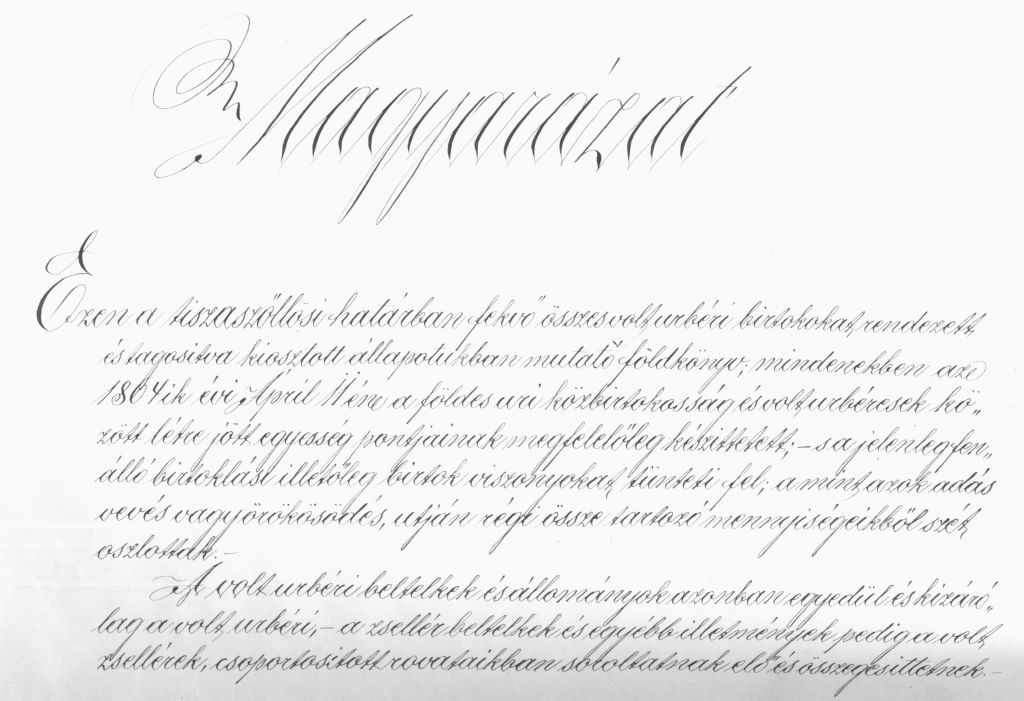 Magyarázat
Ezen a tiszaszőllősi határban fekvő összes volt, urbéri birtokokat, rendezett,
és tagositva kiosztott állapotukban mutató földkönyv; mindenekben az
1864ik évi Ápril 11én a földes uri közbirtokosság és volt urbéresek kö„
zött létre jött egyesség pontjainak megfelelőleg készittetett; – s a jelenleg fen„
álló birtoklási illetőleg birtok viszonyokat, tünteti fel; a mint, azok adás
vevés vagy örökösödés, utján régi össze tartozó mennyiségeikből szét,
oszlottak. –
A volt urbéri beltelkek és állományok azonban egyedül és kizáró„
lag a volt, urbéri, – a zsellér beltelkek és egyébb illetmények pedig a volt,
zsellérek, csoportositott rovataikban soroltatnak elő és összegesittetnek. –